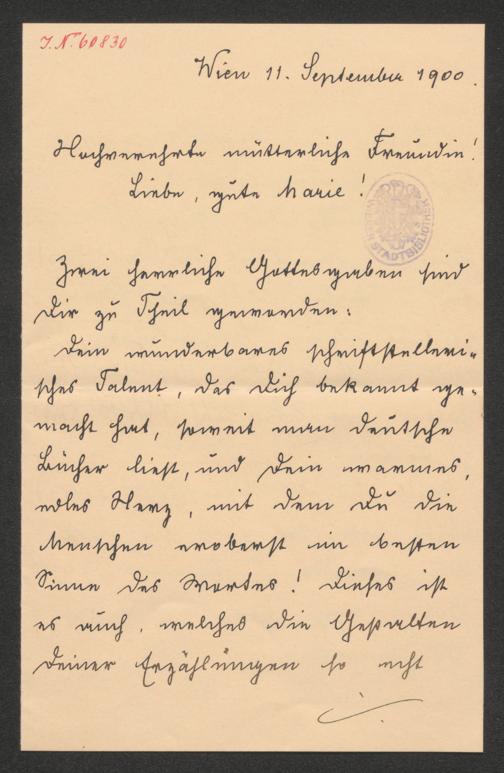 J. N. 60830
Wien 11. September 1900.
Hochverehrte mütterliche Freundin!
Liebe, gute Marie!
STADTBIBLIOTHEK
Zwei herrliche Gottesgaben sind
Dir zu Theil geworden:
Dein wunderbares schriftstelleri-
sches Talent, das Dich bekannt ge-
macht hat, soweit man deutsche
Bücher liest, und Dein warmes,
edles Herz, mit dem Du die
Menschen eroberst im besten
Sinne des Wortes! Dieses ist
es auch, welches die Gestalten
Deiner Erzählungen so echt